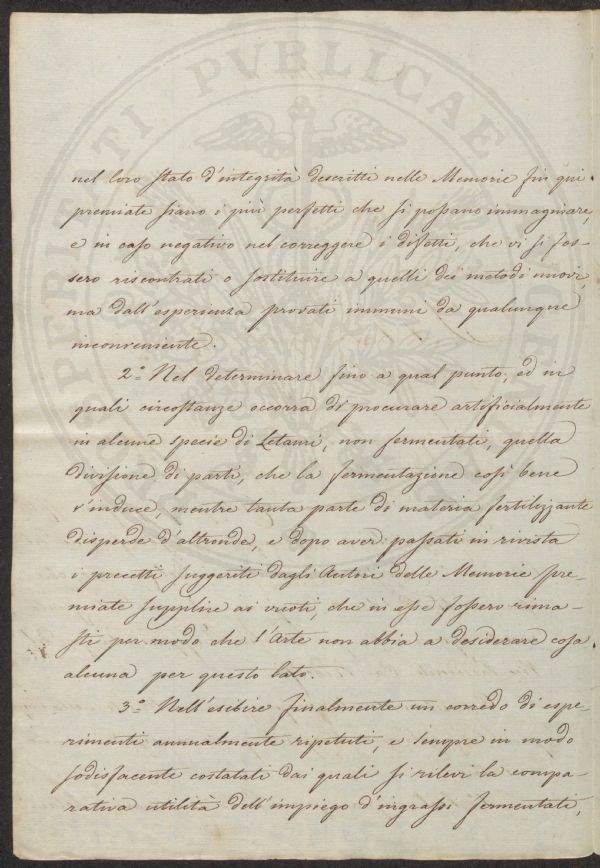 nel loro stato d'integrità descritti nelle Memorie fin qui
premiate siano i più perfetti che si possano immaginare,
e in caso negativo nel correggere i difetti, che vi si fos-
sero riscontrati o sostituire a quelli dei metodi nuovi,
ma dall'esperienza provati immuni da qualunque
inconveniente.
2.º Nel determinare fino a qual punto, ed in
quali circostanze occorra di procurare artificialmente
in alcune specie di Letami, non fermentati, quella
divisione di parti, che la fermentazione così bene
v'induce, mentre tanta parte di materia fertilizzante
disperde d'altronde, e dopo aver passati in rivista
i precetti suggeriti dagli Autori delle Memorie pre-
miate supplire ai vuoti, che in esse fossero rima-
sti per modo che l'Arte non abbia a desiderare cosa
alcuna per questo lato.
3.º Nell'esibire finalmente un corredo di espe-
rimenti annualmente ripetuti, e sempre in modo
sodisfacente costatati dai quali si rilevi la compa-
rativa utilità dell'impiego d'ingrassi fermentati,